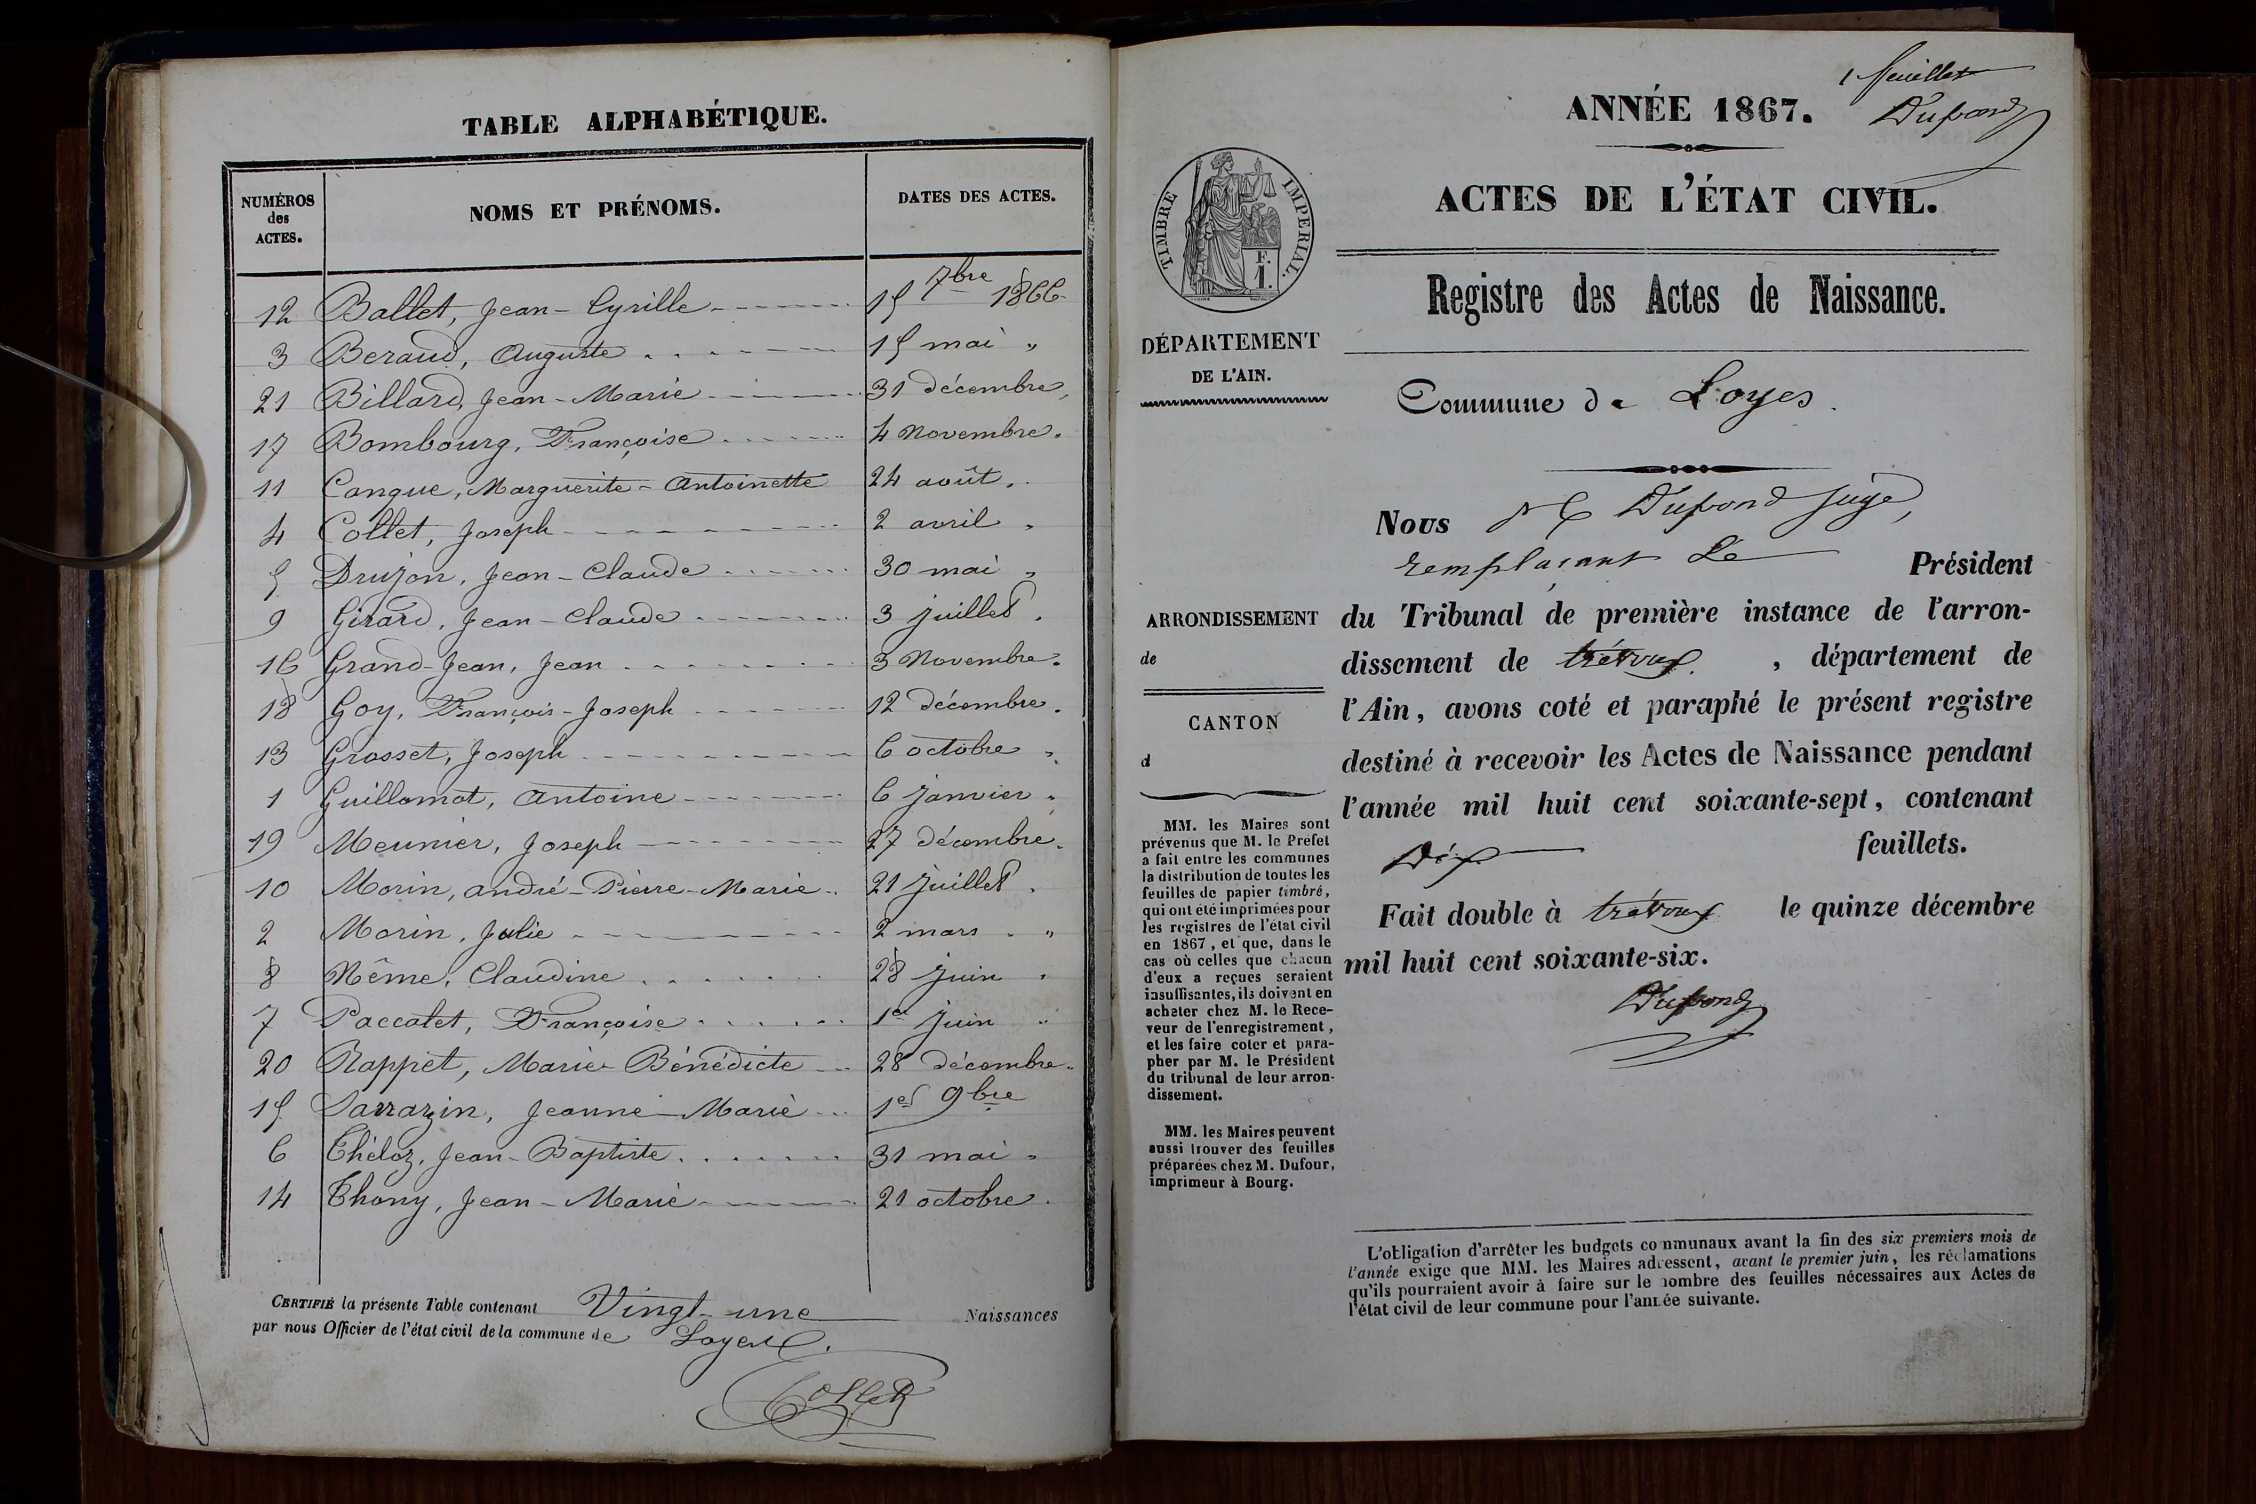 TABLE ALPHABÉTIQUE.
NUMÉROS
des
ACTES.
NOMS ET PRÉNOMS.
DATES DES ACTES.
12 Ballet, Jean-Cyrille 15 7bre 1866
3 Beraud, Auguste 15 mai "
21 Billard, Jean-Marie 31 décembre,
17 Bombourg, Françoise 4 Novembre.
11 Cangue, Marguerite-Antoinette 24 août.
4 Collet, Joseph 2 avril "
5 Drujon, Jean-Claude 30 mai "
9 Girard, Jean-Claude 3 juillet.
16 Grand-Jean, Jean 3 Novembre.
18 Goy, François-Joseph 12 décembre.
13 Grosset, Joseph 6 octobre "
1 Guillomot, Antoine 6 Janvier "
19 Meunier, Joseph 27 décembre.
10 Morin, André-Pierre-Marie 21 Juillet.
2 Morin, Julie 2 mars "
8 Même, Claudine 28 Juin "
7 Paccalet, Françoise 1er Juin "
20 Rappet, Marie Bénédicte 28 décembre.
15 Sarrazin, Jeanne-Marie 1er 9bre
6 Théloz, Jean-Baptiste 31 mai "
14 Thony, Jean-Marie 21 octobre.
CERTIFIÉ la présente Table contenant Vingt-une Naissances
par nous Officier de l'état civil de la commune de Loyes.
Collet
1 feuillet
Dupond
ANNÉE 1867.
ACTES DE L'ÉTAT CIVIL.
TIMBRE IMPERIAL.
F.
1.
Registre des Actes de Naissance.
DÉPARTEMENT
DE L'AIN.
Commune de Loyes.
Nous Dupond Juge,
remplaçant Le Président
du Tribunal de première instance de l'arron-
dissement de trévoux, département de
l'Ain, avons coté et paraphé le présent registre
destiné à recevoir les Actes de Naissance pendant
l'année mil huit cent soixante-sept, contenant
Dix feuillets.
Fait double à trévoux le quinze décembre
mil huit cent soixante-six.
Dupond
ARRONDISSEMENT
de
CANTON
d
MM. les Maires sont
prévenus que M. le Préfet
a fait entre les communes
la distribution de toutes les
feuilles de papier timbré,
qui ont été imprimées pour
les registres de l'état civil
en 1867, et que, dans le
cas où celles que chacun
d'eux a reçues seraient
insuffisantes, ils doivent en
acheter chez M. le Rece-
veur de l'enregistrement,
et les faire coter et para-
pher par M. le Président
du tribunal de leur arron-
dissement.
MM. les Maires peuvent
aussi trouver des feuilles
préparées chez M. Dufour,
imprimeur à Bourg.
L'obligation d'arrêter les budgets communaux avant la fin des six premiers mois de
l'année exige que MM. les Maires adressent, avant le premier juin, les réclamations
qu'ils pourraient avoir à faire sur le nombre des feuilles nécessaires aux Actes de
l'état civil de leur commune pour l'année suivante.